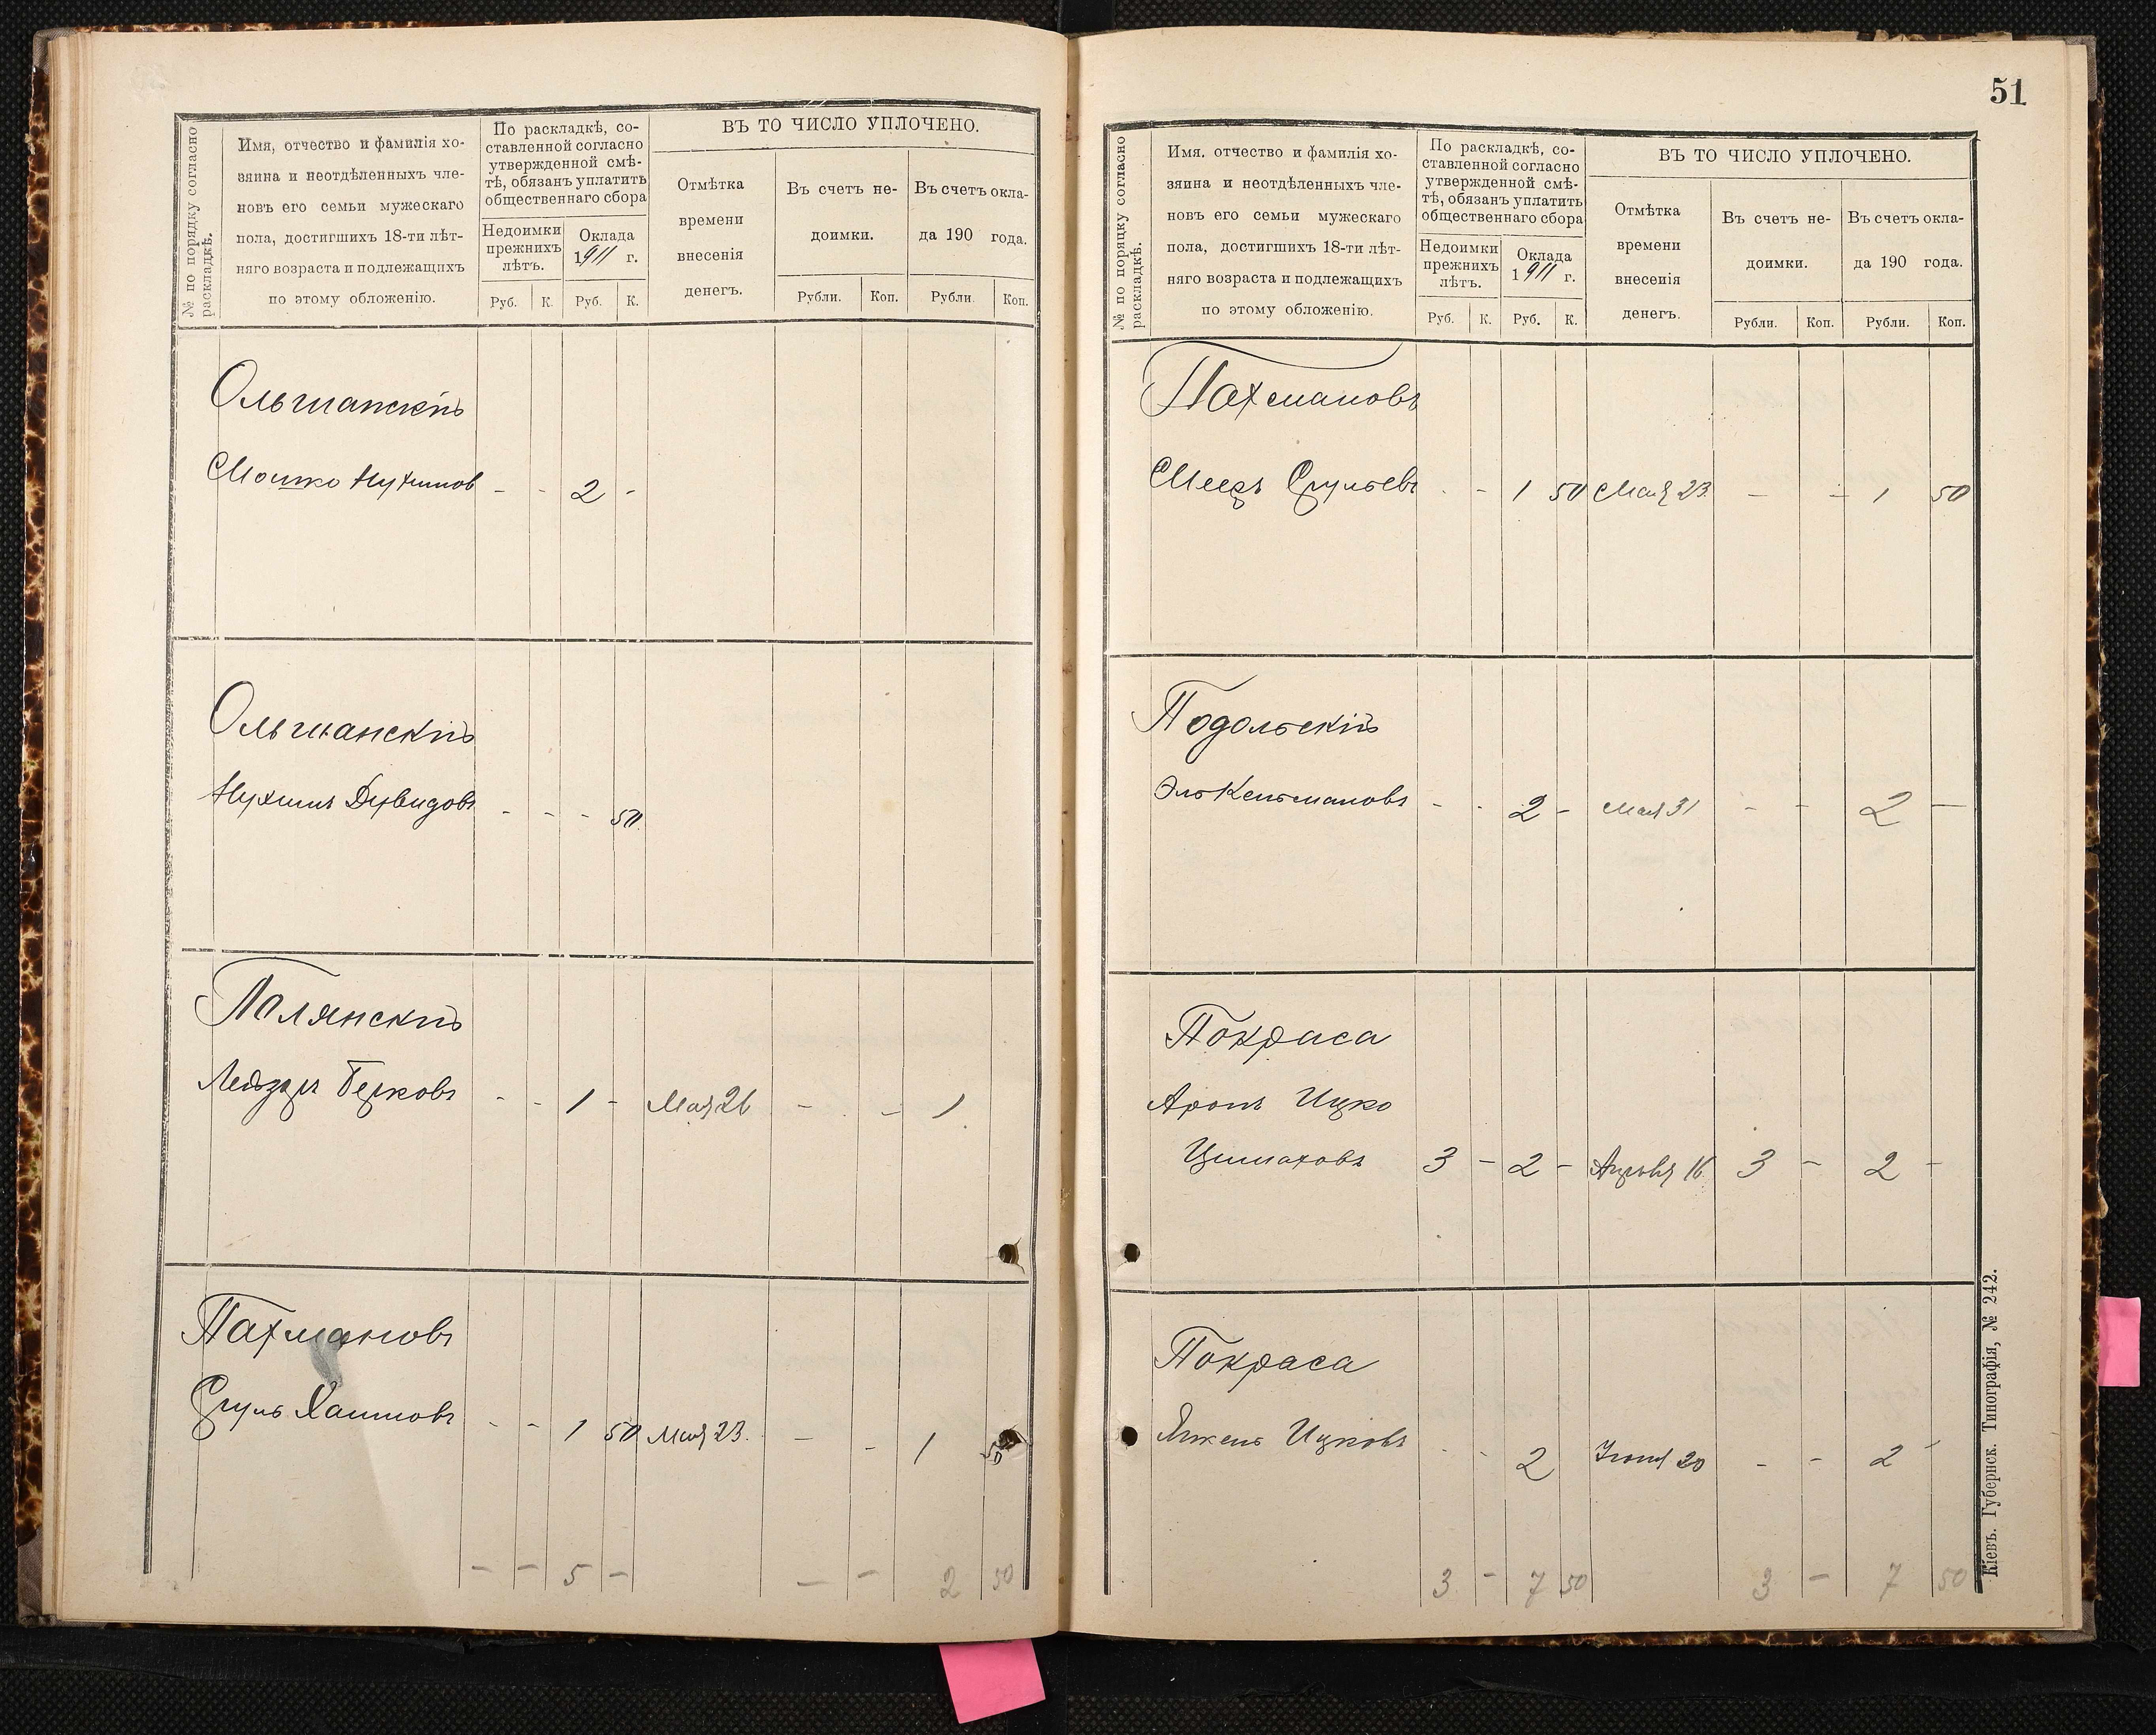 № по порядку согласно
раскладкѣ.
Имя, отчество и фамилія хо-
зяина и неотдѣленныхъ чле-
новъ его семьи мужескаго
пола, достигшихъ 18-ти лѣт-
няго возраста и подлежащихъ
по этому обложенію.
По раскладкѣ, со-
ставленной согласно
утвержденной смѣ-
тѣ, обязанъ уплатить
общественнаго сбора
Недоимки
прежнихъ
лѣтъ.
Оклада
1911 г.
Руб. К. Руб. К.
ВЪ ТО ЧИСЛО УПЛОЧЕНО.
Отмѣтка
времени
внесенія
денегъ.
Въ счетъ не-
доимки.
Въ счетъ окла-
да 190 года.
Рубли. Коп. Рубли. Коп.
Ольшанскій
Мошко Нухимов - - 2 -
Ольшанскій
Нухимъ Дувидовъ - - - 50
Полянскій
Лейзеръ Берковъ - - 1 - Мая 26 - - 1
Пахмановъ
Сруль Хаимовъ - - 1 50 Мая 23. - - 1 50
- - 5 - - - 2 50
51
№ по порядку согласно
раскладкѣ.
Имя, отчество и фамилія хо-
зяина и неотдѣленныхъ чле-
новъ его семьи мужескаго
пола, достигшихъ 18-ти лѣт-
няго возраста и подлежащихъ
по этому обложенію.
По раскладкѣ, со-
ставленной согласно
утвержденной смѣ-
тѣ, обязанъ уплатить
общественнаго сбора
Недоимки
прежнихъ
лѣтъ.
Оклада
1911 г.
Руб. К. Руб. К.
ВЪ ТО ЧИСЛО УПЛОЧЕНО.
Отмѣтка
времени
внесенія
денегъ.
Въ счетъ не-
доимки.
Въ счетъ окла-
да 190 года.
Рубли. Коп. Рубли. Коп.
Пахмановъ
Срульевъ - - 1 50 Мая 23. - - 1 50
Подольскій
Эль Кельмановъ - - 2 - Мая 31 - - 2 -
Покраса
Аронъ Ицко
3 - 2 - Апрѣля 16 3 - 2 -
Покраса
Янкель Ицковъ - - 2 Іюня 20 - - 2 -
3 - 7 50 3 - 7 50
Кіевъ. Губернск. Типографія, № 242.